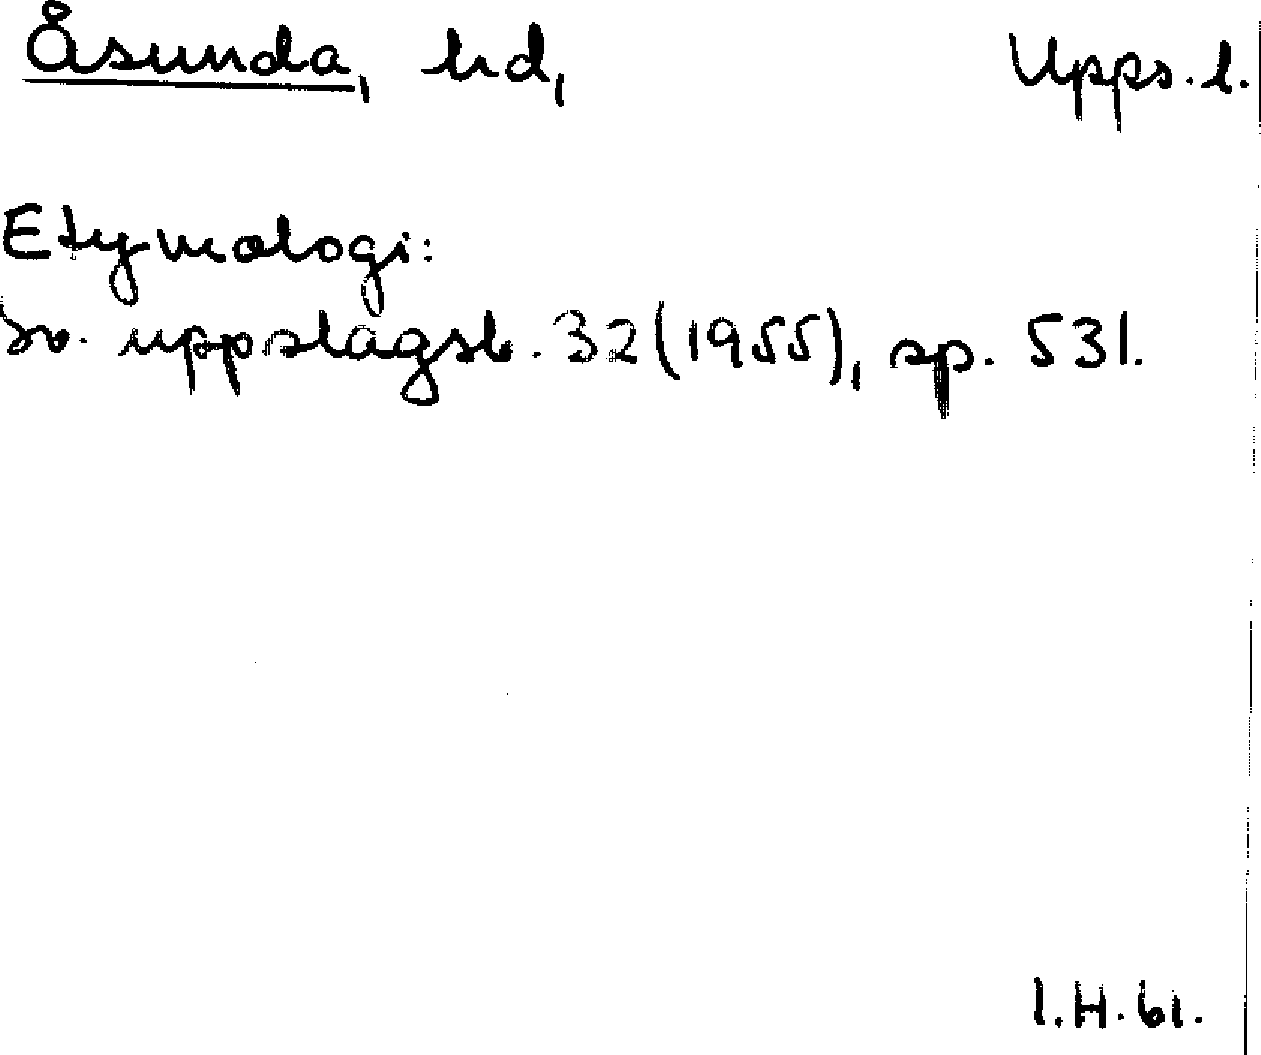 Åsunda, hd, Upps. l.
Etymologi:
Sv. uppslagsb. 32 (1955), sp. 531.
I.H. 61.